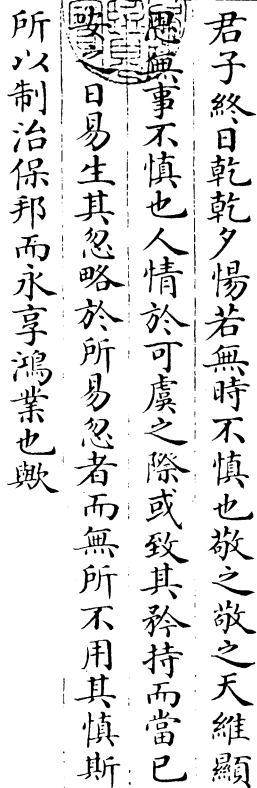 君子終日乾乾夕惕若無時不慎也敬之敬之天維顯
思無事不慎也人情於可虞之際或致其矜持而當已
安之日易生其忽略於所易忽者而無所不用其慎斯
所以制治保邦而永享鴻業也歟